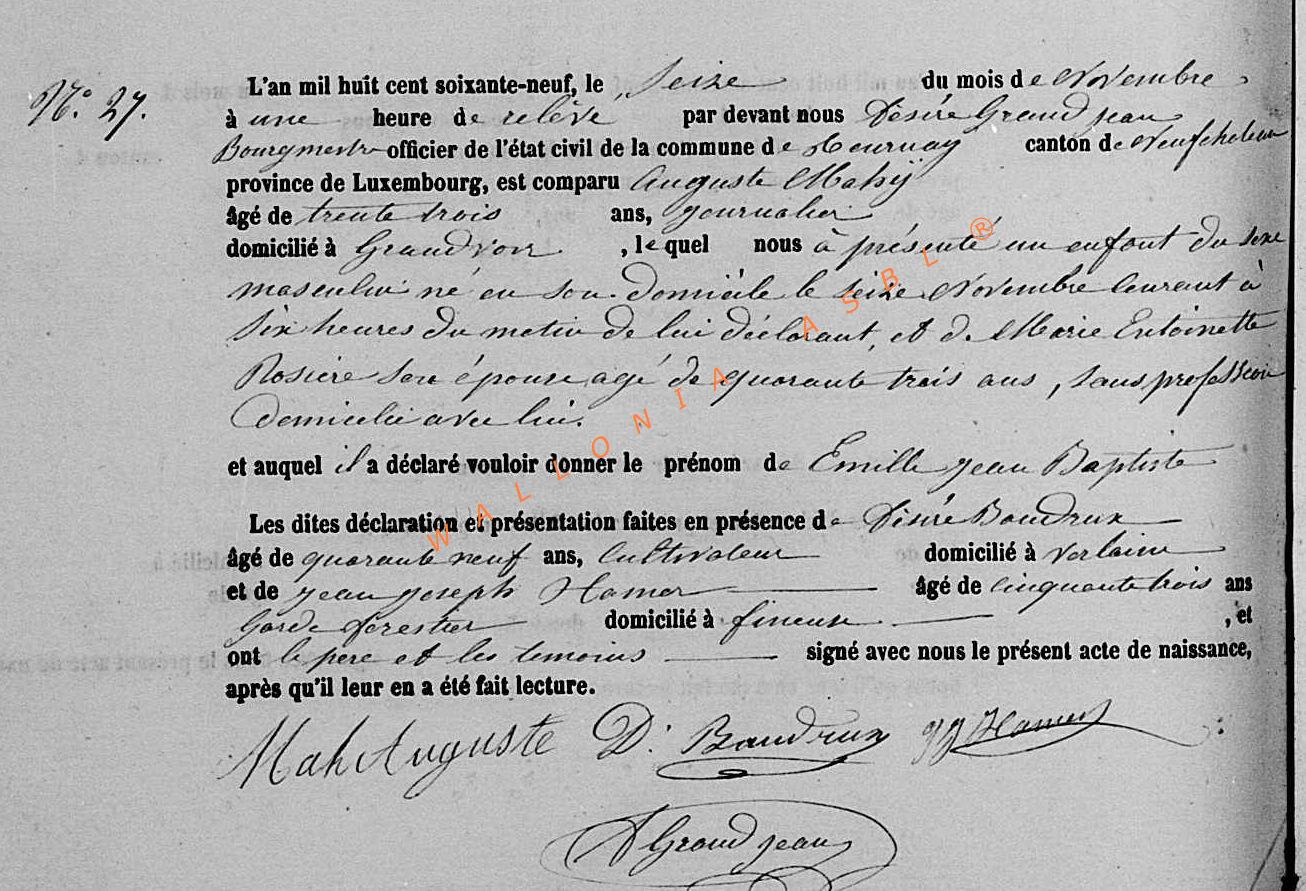 N.° 27.
L'an mil huit cent soixante-neuf, le Seize du mois de Novembre
à une heure de relévé par devant nous Désiré Grandjean
Bourgmestre officier de l'état civil de la commune de Tournay canton de Neufchateau
province de Luxembourg, est comparu Auguste Mahÿ
âgé de trente trois ans, journalier
domicilié à Grandvoir , le quel nous à présenté un enfant du sexe
masculin né en son domicile le seize Novembre courant à
Six heures du matin de lui déclarant, et de Marie Entoinette
Rosiere Son épouse agé de quarante trois ans, sans profession
domicilié avec lui.
et auquel il a déclaré vouloir donner le prénom de Emille Jean Baptiste
Les dites déclaration et présentation faites en présence de Désiré Baudrux
âgé de quarante neuf ans, Cultivateur domicilié à Verlaine
et de Jean Joseph Hamer âgé de cinquante trois ans
Garde forestier domicilié à fineuse , et
ont le pere et les temoins signé avec nous le présent acte de naissance,
après qu'il leur en a été fait lecture.
Mah Auguste D. Baudrux JJ Hamer
D Grandjean
WALLONIA ASBL ®